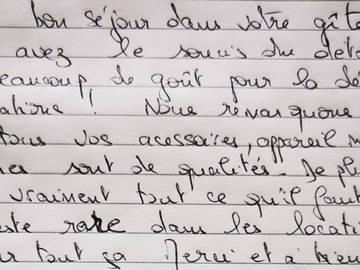 bon séjour dans votre gîte
avez le soucis du déta
eaucoup de goût pour la dé
ations! Nous remarquons
tous vos acessoires, appareil m
es sont de qualités. De plu
vraiment tout ce qu'il faut
ste rare dans les locati
ur tout ça Merci et à bien